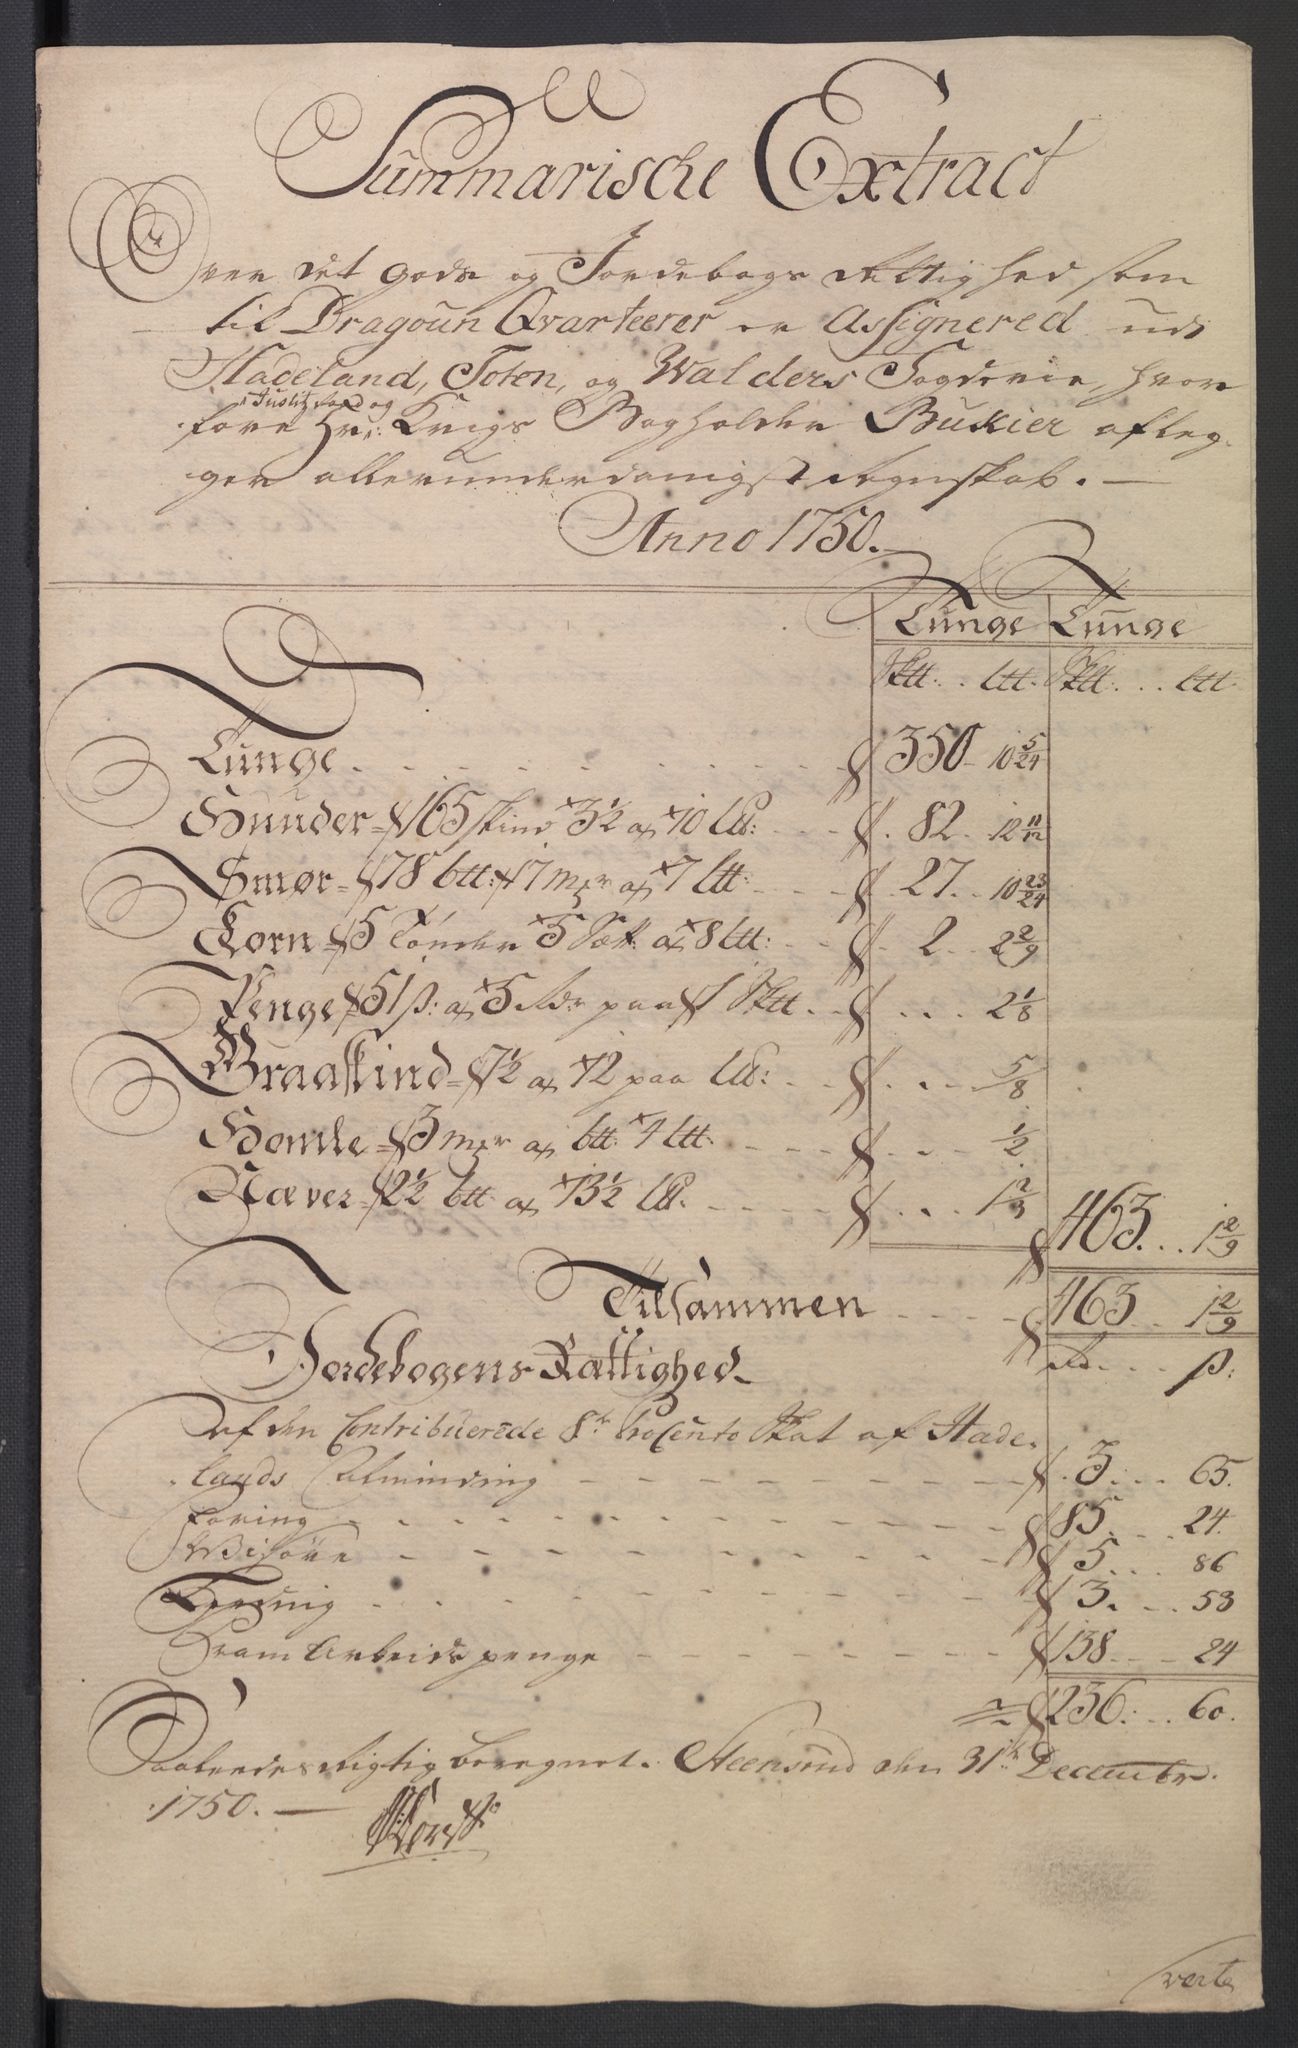 Summarische Extract
Over det gods og Jordebogs Rettighed som
til Dragoun Qvarteerer er Assignered udi
Hadeland, Toten, og Walders Fogderie, hvor
Justitz Raad og
fore Hr: Krigs Bogholder Bukier afleg-
ger allerunderdanigst Regnskab.
Anno 1750.
Tunge Tunge
Sktt: .. Ltt. Sktt: ... Ltt.
Tunge ... 350 - 10 5/24
Huuder = 165 skind 3½ a 10 Ltt: ... 82. 12 11/12
Smør = 78 btt: 17 mrr a 7 Ltt ... 27. 10 23/24
Korn = 5 Tønder 5 Sætt: a 8 Ltt: ... 2. 2 2/9
Penge 51 ß: a 5 Rdr paa 1 Sktt. ... 2 1/8
Graaskind = 7½ a 12 paa Ltt: ... 5/8
Homle = 3 mrr a btt: 4 Ltt: ... 1/2
Næver = 2½ btt a 13½ Ltt. ... 1 2/3
463. .. 1 2/9
Tilsammen ... 463 .. 1 2/9
Jordebogens Rættighed. Rd. ... ß:
af den Contribuerede 8de ProCento Skat af Hade-
lands Alminding ... 3. ... 65.
Foring ... 85. ... 24.
Wisøre ... 5. ... 86
Leeding ... 3. ... 53
Fram Arbeids penge ... 138 ... 24
236: ... 60.
Saaledes Rigtig beregnet. Steensrud den 31te Decembr.
1750. —
verte